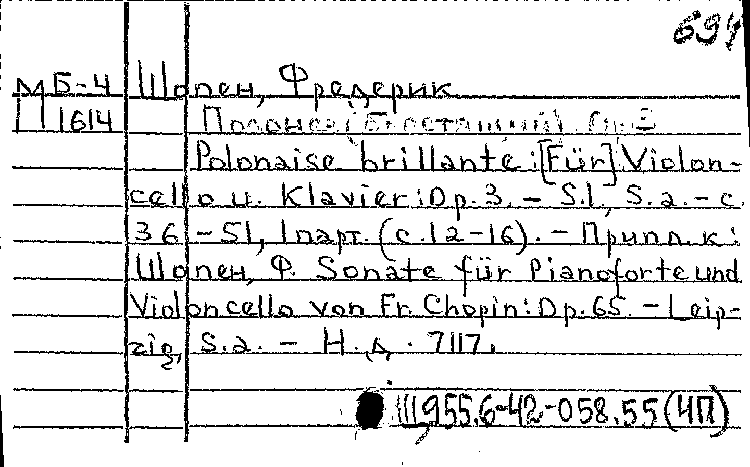 694
М Б-4 Шопен, Фредерик
П 1614 Полонез (Блестящий). Op. 3
Polonaise brillante: [Für] Violon-
cello u. Klavier: Op. 3. - S.l., S.a. - с.
36-51, 1 парт. (с. 12-16). - Припл. к:
Шопен, Ф. Sonate für Pianoforte und
Violoncello von Fr. Chopin: Op. 65. - Leip-
zig, S.a. - Н.д. 7117.
Ш955.6-42-058.55 (4П)